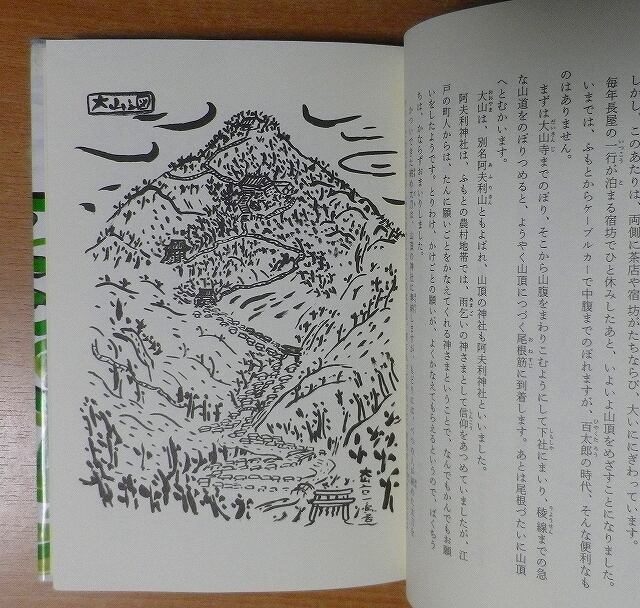 しかし、このあたりは、両側に茶店や宿坊がたちならび、大いににぎわっています。
毎年長屋の一行が泊まる宿坊でひと休みしたあと、いよいよ山頂をめざすことになりました。
いまでは、ふもとからケーブルカーで中腹までのぼれますが、百太郎の時代、そんな便利なも
のはありません。
まずは大山寺までのぼり、そこから山腹をまわりこむようにして下社にまいり、稜線までの急
な山道をのぼりつめると、ようやく山頂につづく尾根筋に到着します。あとは尾根づたいに山頂
へとむかいます。
大山は、別名阿夫利山ともよばれ、山頂の神社も阿夫利神社といいました。
阿夫利神社は、ふもとの農村地帯では、雨乞いの神さまとして信仰をあつめていましたが、江
戸の町人からは、たんに願いごとをかなえてくれる神さまということで、なんでもかんでもお願
いをしたようです。とりわけ、かけごとの願いが、よくかなえてもらえるというので、ばくちう
ちは、かならずおまいりしました。
大山之図